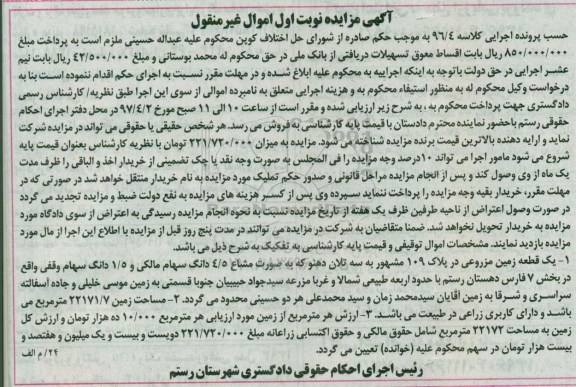 آگهی مزایده نوبت اول اموال غیر منقول
حسب پرونده اجرایی کلاسه ۹۶/۴ به موجب حکم صادره از شورای حل اختلاف کوپن محکوم علیه عبداله حسینی ملزم است به پرداخت مبلغ
۸۵۰/۰۰۰/۰۰۰ ریال بابت اقساط معوق تسهیلات دریافتی از بانک ملی در حق محکوم له محمد بوستانی و مبلغ ۴۲/۵۰۰/۰۰۰ ریال بابت نیم
عشر اجرایی در حق دولت باتوجه به اینکه اجراییه به محکوم علیه ابلاغ شده و در مهلت مقرر نسبت به اجرای حکم اقدام ننموده است بنا به
درخواست وکیل محکوم له به منظور استیفاء محکوم به و هزینه اجرایی متعلق به نامبرده اموالی از سوی این اجرا طبق نظریه/ کارشناس رسمی
دادگستری جهت پرداخت محکوم به، به شرح زیر ارزیابی شده و مقرر است از ساعت ۱۰ الی ۱۱ صبح مورخ ۹۷/۴/۲ در محل دفتر اجرای احکام
حقوقی رستم باحضور نماینده محترم دادستان با قیمت پایه کارشناسی به فروش می رسد. هر شخص حقیقی یا حقوقی می تواند در مزایده شرکت
نماید و ارایه دهنده بالاترین قیمت برنده مزایده شناخته می شود. مزایده به میزان ۲۲۱/۷۲۰/۰۰۰ تومان با نظریه کارشناس بعنوان قیمت پایه
شروع می شود مامور اجرا می تواند ۱۰درصد وجه مزایده را فی المجلس به صورت وجه نقد یا چک تضمینی از خریدار اخذ و الباقی را ظرف مدت
یک ماه از وی وصول کند و پس از انجام مزایده مراحل قانونی و صدور حکم تملیک مورد مزایده به نام خریدار منتقل خواهد شد در صورتی که در
مهلت مقرر، خریدار بقیه وجه مزایده را پرداخت ننماید سپرده وی پس از کسر هزینه های مزایده به نفع دولت ضبط و مزایده تجدید می گردد
در صورت وصول اعتراض از ناحیه طرفین ظرف یک هفته از تاریخ مزایده نسبت به نحوه انجام مزایده رسیدگی به اعتراض از سوی دادگاه مورد
مزایده به خریدار تحویل نخواهد شد. ضمنا متقاضیان به شرکت در مزایده می توانند در مدت پنج روز قبل از مزایده با اطلاع این اجرا از مال مورد
مزایده بازدید نمایند. مشخصات اموال توقیفی و قیمت پایه کارشناسی به تفکیک به شرح ذیل می باشد.
۱- یک قطعه زمین مزروعی در پلاک ۱۰۹ مشهور به سه تلان دهنو که به صورت مشاع ۴/۵ دانگ سهام مالکی و ۱/۵ دانگ سهام وقفی واقع
در بخش ۷ فارس دهستان رستم با حدود اربعه طبیعی شمالا و غربا مزرعه سیدجواد حبیبیان جنوبا قسمتی به زمین موسی خلیلی و جاده آسفالته
سراسری و شرقا به زمین آقایان سیدمحمد زمان و سید محمدعلی هر دو حسینی محدود می گردد. ۲- مساحت زمین ۲۲۱۷۱/۷ مترمربع می
باشد و دارای کاربری زراعی در طبیعت می باشد. ۳- ارزش هر مترمربع از زمین مورد ارزیابی هر مترمربع ۱۰/۰۰۰ ده هزار تومان و ارزش کل
زمین به مساحت ۲۲۱۷۲ مترمربع شامل حقوق مالکی و حقوق اکتسابی زراعانه مبلغ ۲۲۱/۷۲۰/۰۰۰ دویست و بیست و یک میلیون و هفتصد و
بیست هزار تومان در سهم محکوم علیه (خوانده) تعیین می گردد. ۲۴/ م الف
رئیس اجرای احکام حقوقی دادگستری شهرستان رستم